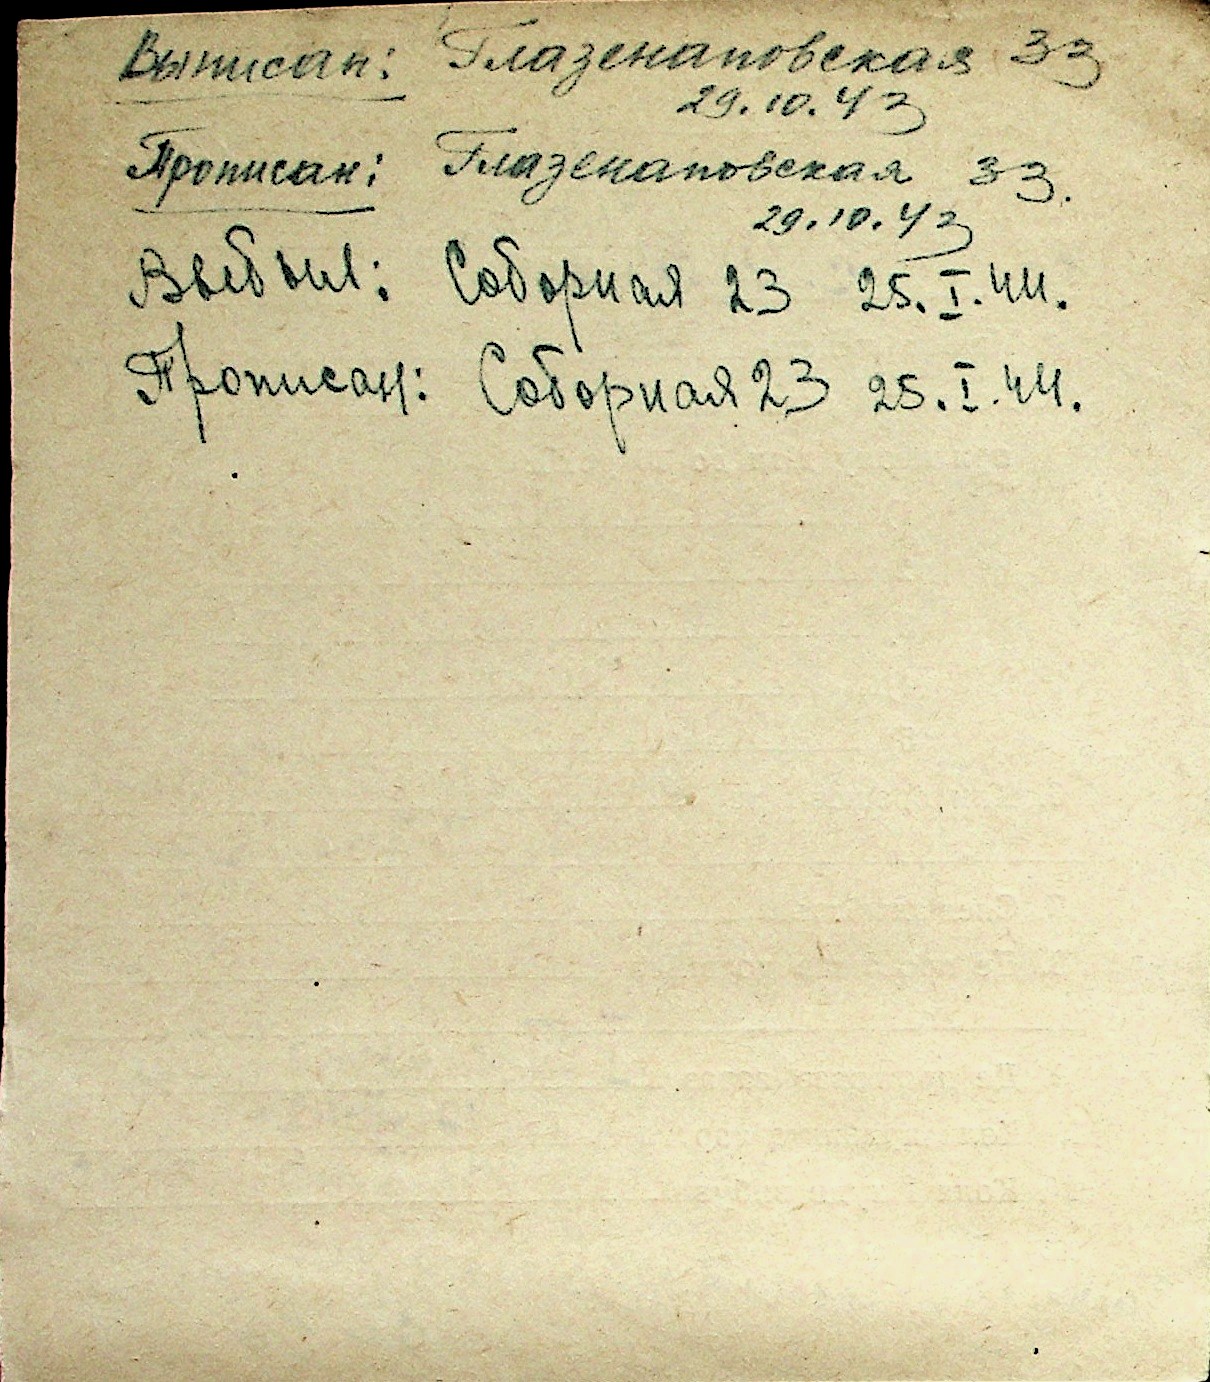 Выписан: Глазенаповская 33
29.10.43
Прописан: Глазенаповская 33.
29.10.43
Выбыл: Соборная 23 25.I.44.
Прописан: Соборная 23 25.I.44.